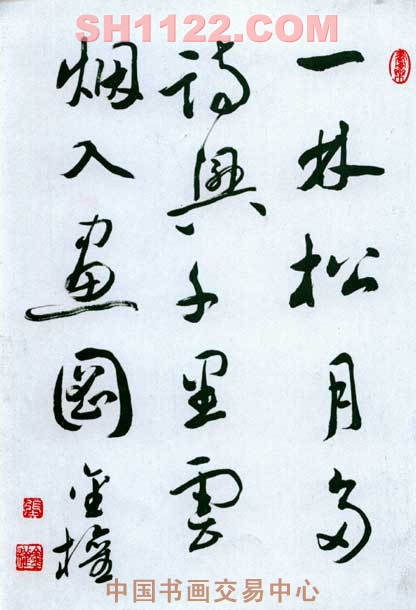 SH1122.COM
一林松月多
詩興千里雲
烟入畫圖
中国书画交易中心